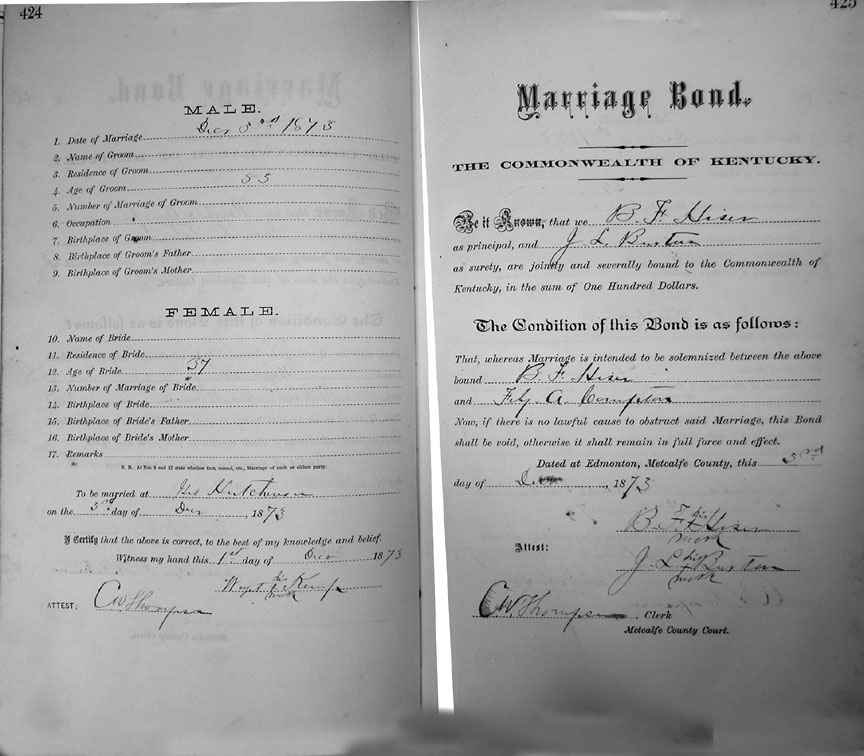 424
MALE.
1. Date of Marriage Dec 3rd 1873
2. Name of Groom
3. Residence of Groom
4. Age of Groom 53
5. Number of Marriage of Groom
6. Occupation
7. Birthplace of Groom
8. Birthplace of Groom's Father
9. Birthplace of Groom's Mother
FEMALE.
10. Name of Bride
11. Residence of Bride
12. Age of Bride 37
13. Number of Marriage of Bride
14. Birthplace of Bride
15. Birthplace of Bride's Father
16. Birthplace of Bride's Mother
17. Remarks
N. B. At Nos. 5 and 13 state whether first, second, etc., Marriage of each or either party.
To be married at Geo Hutcherson
on the 3rd day of Dec, 1873
I Certify that the above is correct, to the best of my knowledge and belief.
Witness my hand this 1st day of Dec 1873
his Kemp
mark
ATTEST; C W Thompson
425
Marriage Bond.
THE COMMONWEALTH OF KENTUCKY.
Be it Known, that we B. F. Hiser
as principal, and J L Burten
as surety, are jointly and severally bound to the Commonwealth of
Kentucky, in the sum of One Hundred Dollars.
The Condition of this Bond is as follows:
That, whereas Marriage is intended to be solemnized between the above
bound B. F. Hiser
and A. Compton
Now, if there is no lawful cause to obstruct said Marriage, this Bond
shall be void, otherwise it shall remain in full force and effect.
Dated at Edmonton, Metcalfe County, this 3rd
day of Dec, 1873
B. F. his Hiser
mark
Attest:
J L his Burten
mark
C W Thompson, Clerk
Metcalfe County Court.